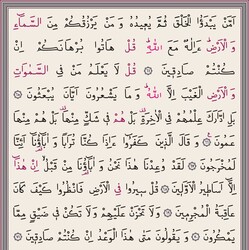 أَمَّن يَبْدَؤُا۟ ٱلْخَلْقَ ثُمَّ يُعِيدُهُۥ وَمَن يَرْزُقُكُم مِّنَ ٱلسَّمَآءِ
وَٱلْأَرْضِ ۗ أَءِلَٰهٌ مَّعَ ٱللَّهِ ۚ قُلْ هَاتُوا۟ بُرْهَٰنَكُمْ إِن
كُنتُمْ صَٰدِقِينَ ۝ قُل لَّا يَعْلَمُ مَن فِى ٱلسَّمَٰوَٰتِ
وَٱلْأَرْضِ ٱلْغَيْبَ إِلَّا ٱللَّهُ ۚ وَمَا يَشْعُرُونَ أَيَّانَ يُبْعَثُونَ ۝
بَلِ ٱدَّٰرَكَ عِلْمُهُمْ فِى ٱلْءَاخِرَةِ ۚ بَلْ هُمْ فِى شَكٍّ مِّنْهَا ۖ بَلْ هُم مِّنْهَا
عَمُونَ ۝ وَقَالَ ٱلَّذِينَ كَفَرُوٓا۟ أَءِذَا كُنَّا تُرَٰبًا وَءَابَآؤُنَآ أَئِنَّا
لَمُخْرَجُونَ ۝ لَقَدْ وُعِدْنَا هَٰذَا نَحْنُ وَءَابَآؤُنَا مِن قَبْلُ إِنْ هَٰذَآ
إِلَّآ أَسَٰطِيرُ ٱلْأَوَّلِينَ ۝ قُلْ سِيرُوا۟ فِى ٱلْأَرْضِ فَٱنظُرُوا۟ كَيْفَ كَانَ
عَٰقِبَةُ ٱلْمُجْرِمِينَ ۝ وَلَا تَحْزَنْ عَلَيْهِمْ وَلَا تَكُن فِى ضَيْقٍ مِّمَّا
يَمْكُرُونَ ۝ وَيَقُولُونَ مَتَىٰ هَٰذَا ٱلْوَعْدُ إِن كُنتُمْ صَٰدِقِينَ ۝